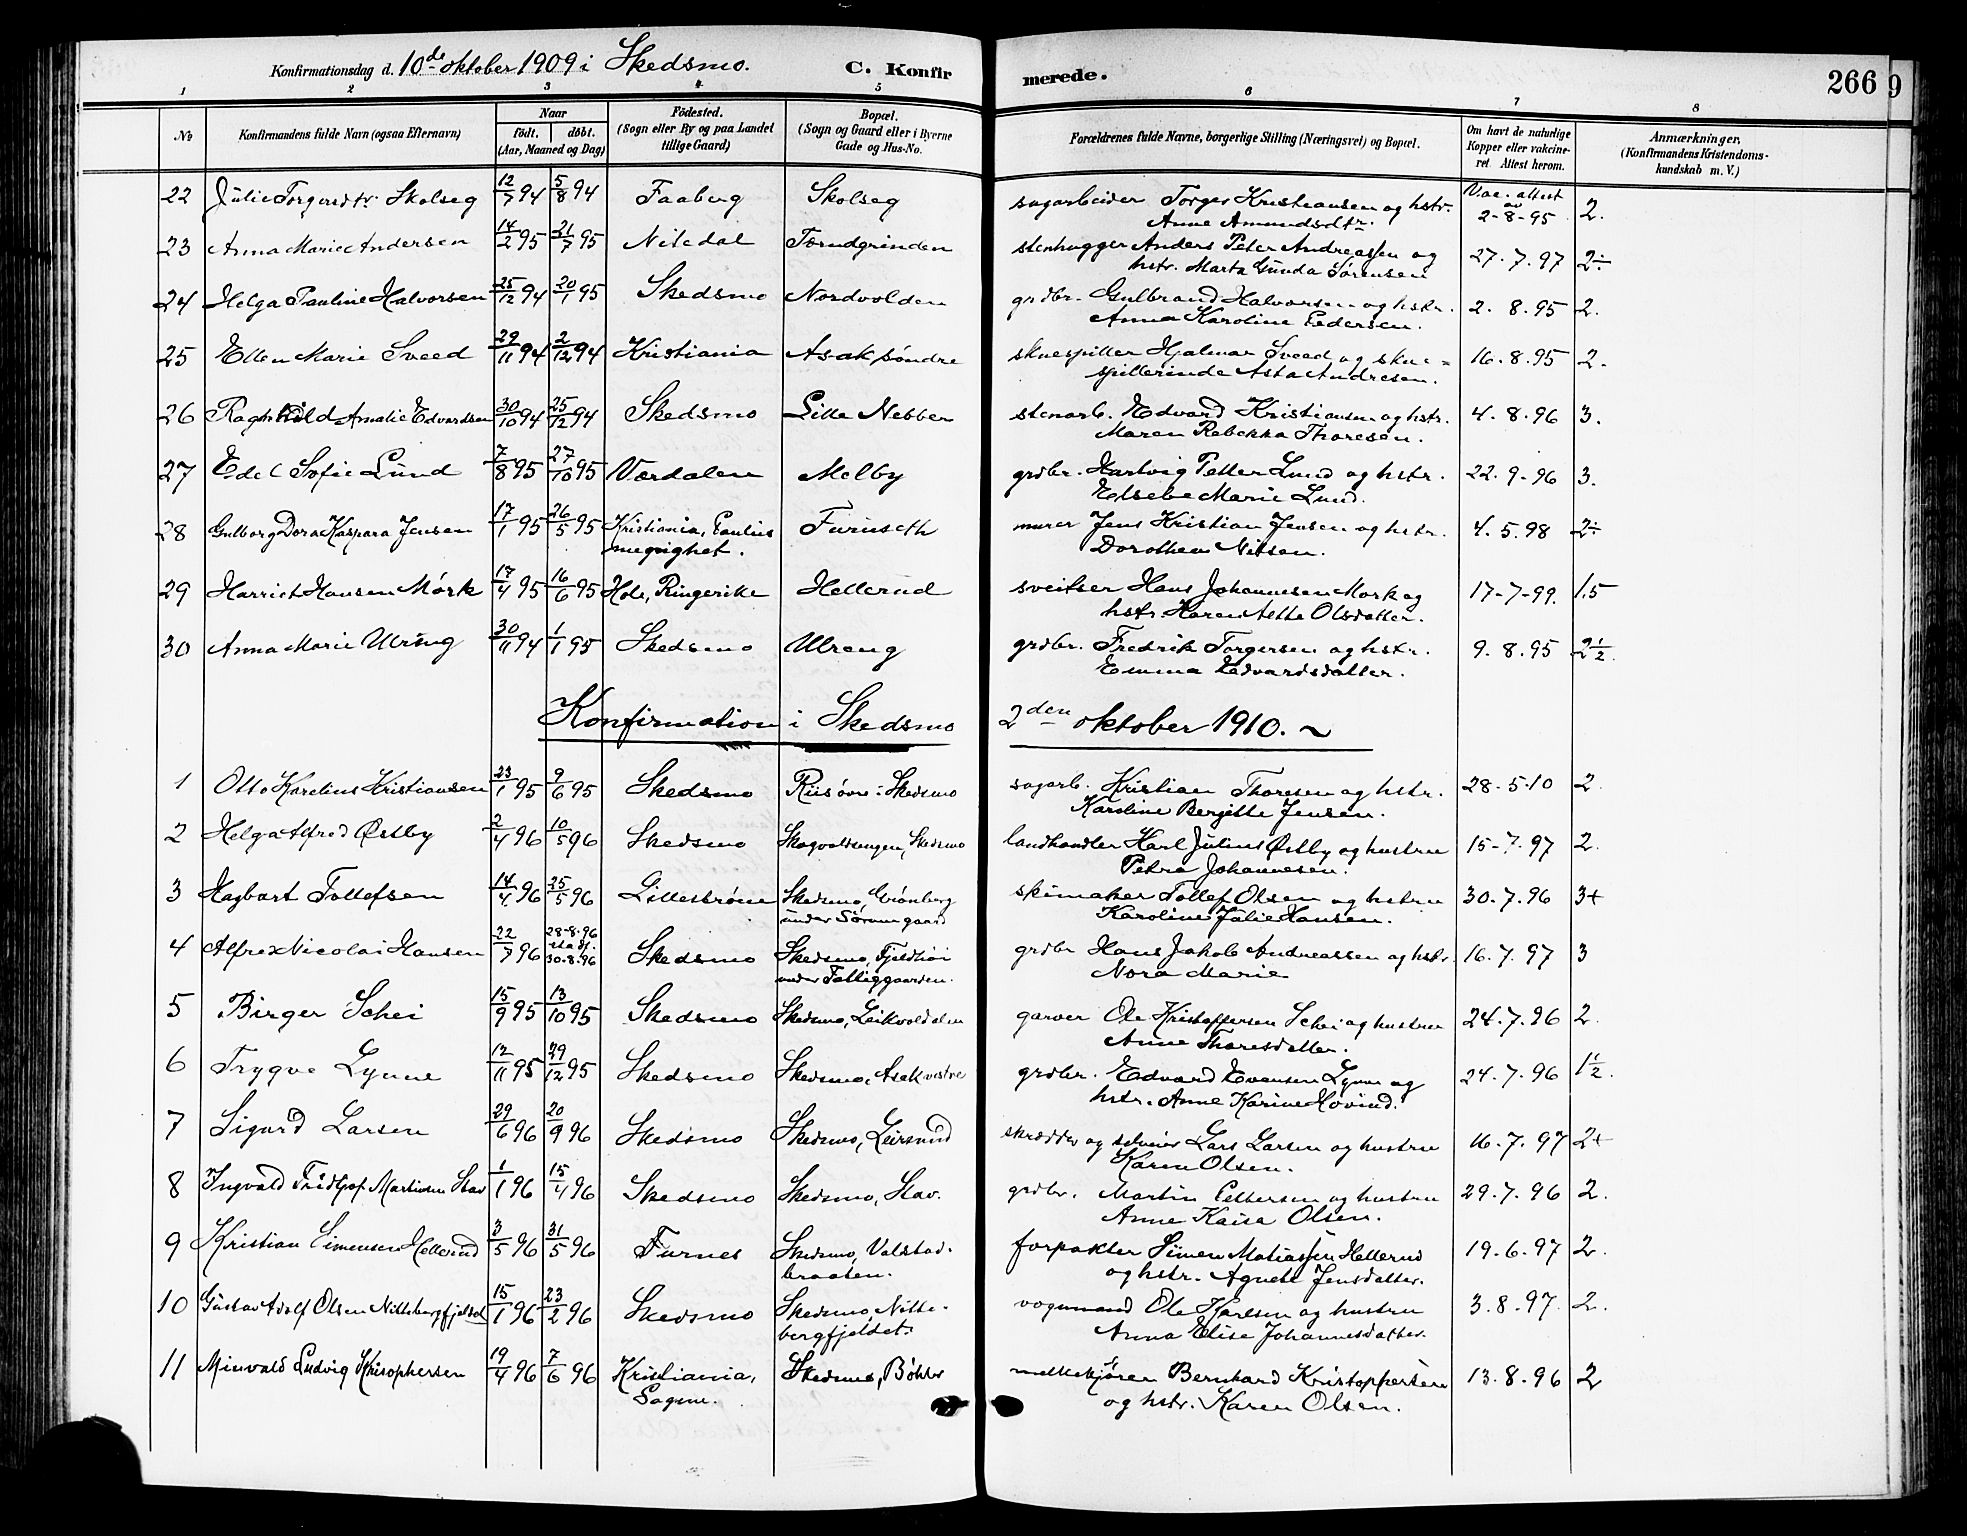 Konfirmationsdag d. 10de oktober 1909 i Skedsmo. C. Konfirmerede. 266 9
1 2 3 4 5 6 7 8
No
Konfirmandens fulde Navn (ogsaa Efternavn)
Naar
födt. döbt.
(Aar, Maaned og Dag)
Födested.
(Sogn eller By og paa Landet
tillige Gaard)
Bopæl.
(Sogn og Gaard eller i Byerne
Gade og Hus-No.
Forældrenes fulde Navne, borgerlige Stilling (Næringsvei) og Bopæl.
Om havt de naturlige
Kopper eller vakcine-
ret. Attest herom.
Anmærkninger,
(Konfirmandens Kristendoms-
kundskab m. V.)
22 Julie Torgersdtr. Skolseg 12/7 94 5/8 94 Faaberg Skolseg sagarbeider Torger Kristiansen og hstr. Vac. attest av 2-8-95 2.
Anne Amundsdtr.
23 Anna Marie Andersen 14/2 95 21/7 95 Nitedal Tærudgrinden stenhugger Anders Peter Andreassen og 27.7.97 2÷
hstr. Marta Gunda Sørensen
24 Helga Pauline Halvorsen 25/12 94 20/1 95 Skedsmo Nordvolden grdbr. Gulbrand Halvorsen og hstr. 2.8.95 2.
Anna Karoline Pedersen.
25 Ellen Marie Sveed 29/11 94 2/12 94 Kristiania Asak søndre skuespiller Hjalmar Sveed og skue= 16.8.95 2.
spillerinde Asta Andresen.
26 Ragnhild Amalie Edvardsen 30/10 94 25/12 94 Skedsmo Lille Nebben stenarb. Edvard Kristiansen og hstr. 4.8.96 3.
Maren Rebekka Thoresen.
27 Edel Sofie Lund 7/8 95 27/10 95 Værdalen Melby grdbr. Hartvig Petter Lund og hstr. 22.9.96 3.
Elsebe Marie Lund.
28 Gulborg Dora Kaspara Jensen 17/1 95 26/5 95 Kristiania, Paulus Furuseth murer Jens Kristian Jensen og hstr. 4.5.98 2÷
megnighet. Dorothea Nilsen.
29 Harriet Hansen Mørk 17/4 95 16/6 95 Hole, Ringerike Hellerud sveitser Hans Johannesen Mørk og 17-7-99. 1.5
hstr. Karen Aette Olsdatter.
30 Anna Marie Ulring 30/11 94 1/1 95 Skedsmo Ulreng grdbr. Fredrik Torgersen og hstr. 9.8.95 2½.
Emma Edvardsdatter.
Konfirmation i Skedsmo 2den oktober 1910. ~
1 Otto Karelius Kristiansen 23/1 95 9/6 95 Skedsmo Riis øvre i Skedsmo sagarb. Kristian Thoresen og hstr. 28.5.10 2
Karoline Bergitte Jensen.
2 Helga Alfred Østby 2/4 96 10/5 96 Skedsmo Skogvoldsengen, Skedsmo landhandler Karl Julius Østby og hustru 15-7.97 2.
Petra Johannesen.
3 Hagbart Tollefsen 14/4 96 25/5 96 Lillestrømmen Skedsmo, Grønberg skimaker Tollef Olsen og hustru 30.7.96 3+
under Sørumgaard Karoline Julie Hansen.
4 Alfred Nicolai Hansen 22/7 96 28-8.96 stadf. 30.8.96 Skedsmo Skedsmo, Fjeldhøi grdbr Hans Jakob Andreassen og hstr. 16.7.97 3
under Falliggaarden. Nora Marie
5 Birger Schei 15/9 95 13/10 95 Skedsmo Skedsmo, Leikvoldalen garver Ole Kristoffersen Schei og hustru 24.7.96 2.
Anne Thoresdatter.
6 Trygve Lynne 12/11 95 29/12 95 Skedsmo Skedsmo, Asak vestre grdbr. Edvard Evensen Lynne og 24.7.96 1½.
hstr. Anne Karine Hovind.
7 Sigurd Larsen 29/6 96 20/9 96 Skedsmo Skedsmo, Leirsund skrædder og selveier Lars Larsen og hustru 16.7.97 2+
Karen Olsen.
8 Ingvald Fridtjof Martinsen Stav 1/1 96 15/4 96 Skedsmo Skedsmo, Stav. grdbr. Martin Pettersen og hustru 29.7.96 2.
Anne Kaisa Olsen.
9 Kristian Simensen Hellerud 3/5 96 31/5 96 Furnes Skedsmo, Valstad- forpakter Simen Matiassen Hellerud 19.6.97 2.
braaten. og hstr. Agnete Jensdatter.
10 Gustav Adolf Olsen Nittebergfjeldet 15/1 96 23/2 96 Skedsmo Skedsmo, Nitte- vognmand Ole Karlsen og hustru 3.8.97. 2.
bergfjeldet. Anna Elise Johannesdatter.
11 Minvald Ludvig Kristophersen 19/4 96 7/6 96 Kristiania, Skedsmo, Bøhler melkekjører Bernhard Kristoffersen 13.8.96 2
Sagene. og hstr. Karen Olsen.